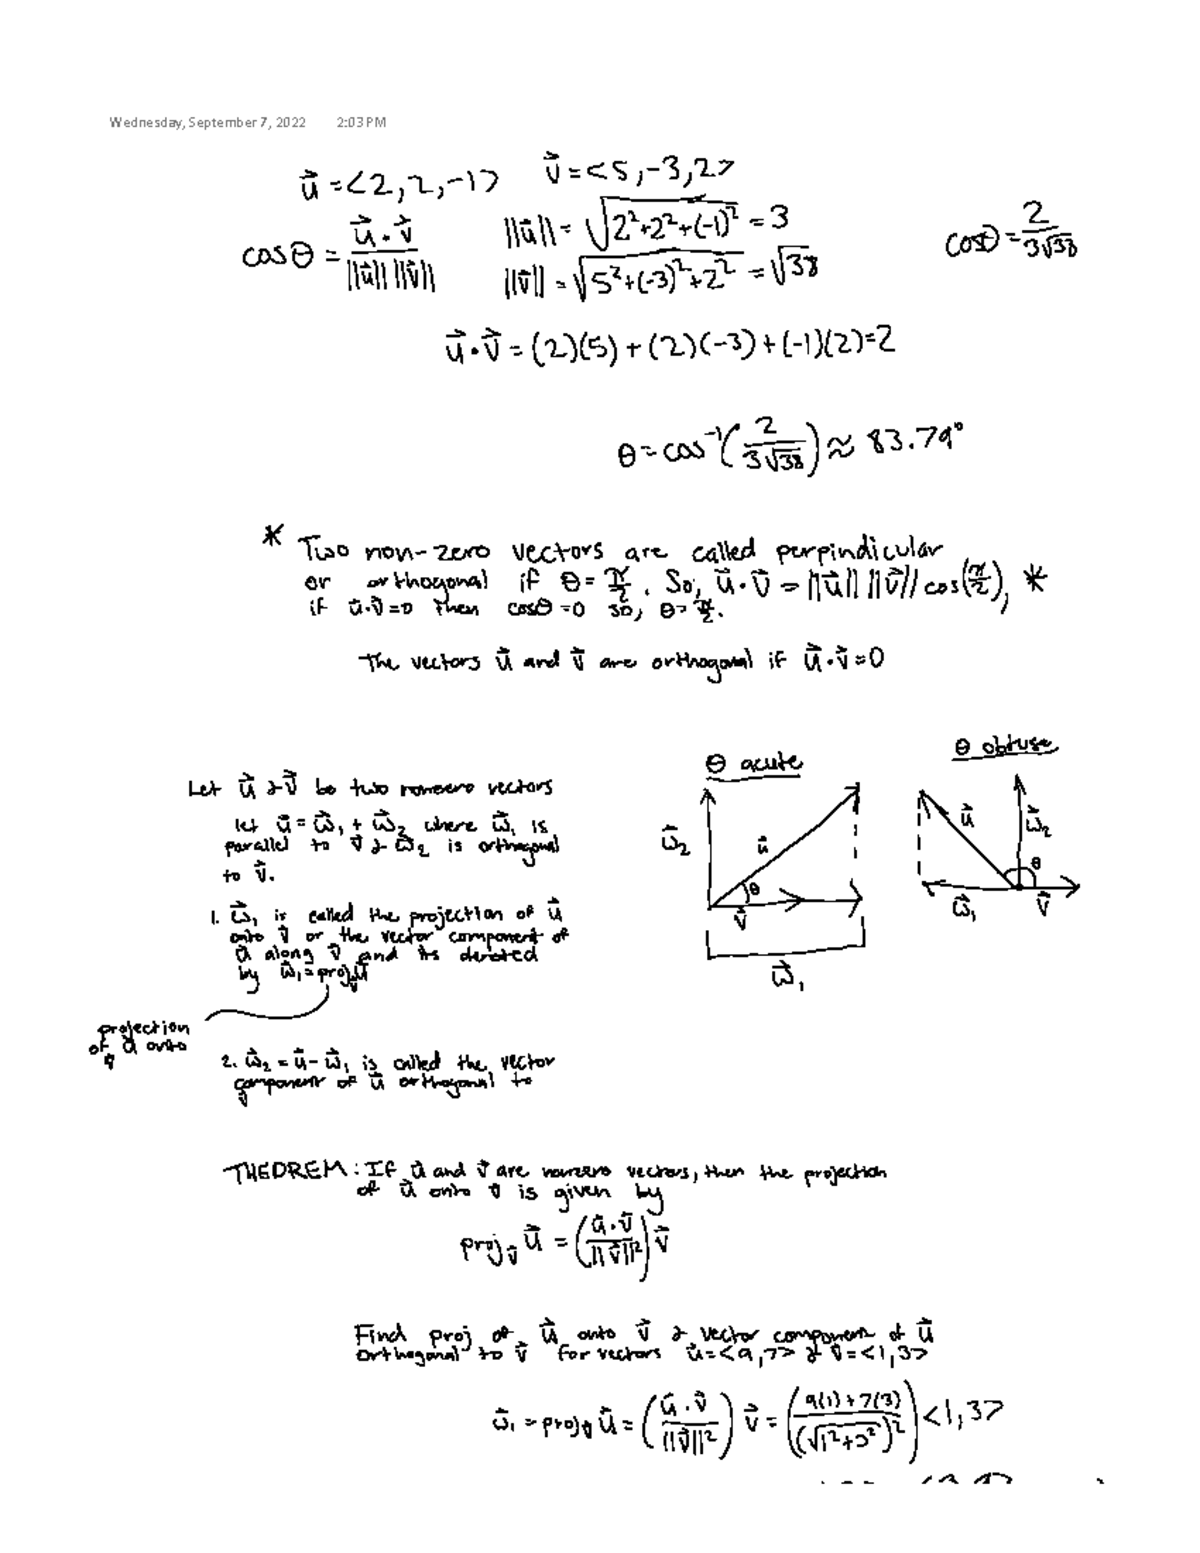 Wednesday, September 7, 2022 2:03 PM
u⃗ = <2, 2, -1> v⃗ = <5, -3, 2>
cosθ = (u⃗ · v⃗)/(||u⃗|| ||v⃗||) ||u⃗|| = √(2²+2²+(-1)²) = 3 cosθ = 2/(3√38)
||v⃗|| = √(5²+(-3)²+2²) = √38
u⃗ · v⃗ = (2)(5) + (2)(-3) + (-1)(2) = 2
θ = cos⁻¹(2/(3√38)) ≈ 83.79°
* Two non-zero vectors are called perpindicular
or orthogonal if θ = π/2. So, u⃗ · v⃗ = ||u⃗|| ||v⃗|| cos(π/2), *
if u⃗·v⃗=0 then cosθ=0 so, θ=π/2.
The vectors u⃗ and v⃗ are orthogonal if u⃗·v⃗=0
θ acute
θ obtuse
Let u⃗ & v⃗ be two nonzero vectors
let u⃗ = w⃗₁ + w⃗₂ where w⃗₁ is
parallel to v⃗ & w⃗₂ is orthogonal
to v⃗.
w⃗₂ u⃗ θ v⃗ w⃗₁
u⃗ w⃗₂ θ w⃗₁ v⃗
1. w⃗₁ is called the projection of u⃗
onto v⃗ or the vector component of
u⃗ along v⃗ and its denoted
by w⃗₁ = proj_v⃗ u⃗
projection
of u⃗ onto
v⃗
2. w⃗₂ = u⃗ - w⃗₁ is called the vector
component of u⃗ orthogonal to
v⃗
THEOREM: If u⃗ and v⃗ are nonzero vectors, then the projection
of u⃗ onto v⃗ is given by
proj_v⃗ u⃗ = (u⃗·v⃗/||v⃗||²) v⃗
Find proj of u⃗ onto v⃗ & vector component of u⃗
orthogonal to v⃗ for vectors u⃗=<9,7> & v⃗=<1,3>
w⃗₁ = proj_v⃗ u⃗ = (u⃗·v⃗/||v⃗||²) v⃗ = ((9(1)+7(3))/(√(1²+3²))²) <1,3>